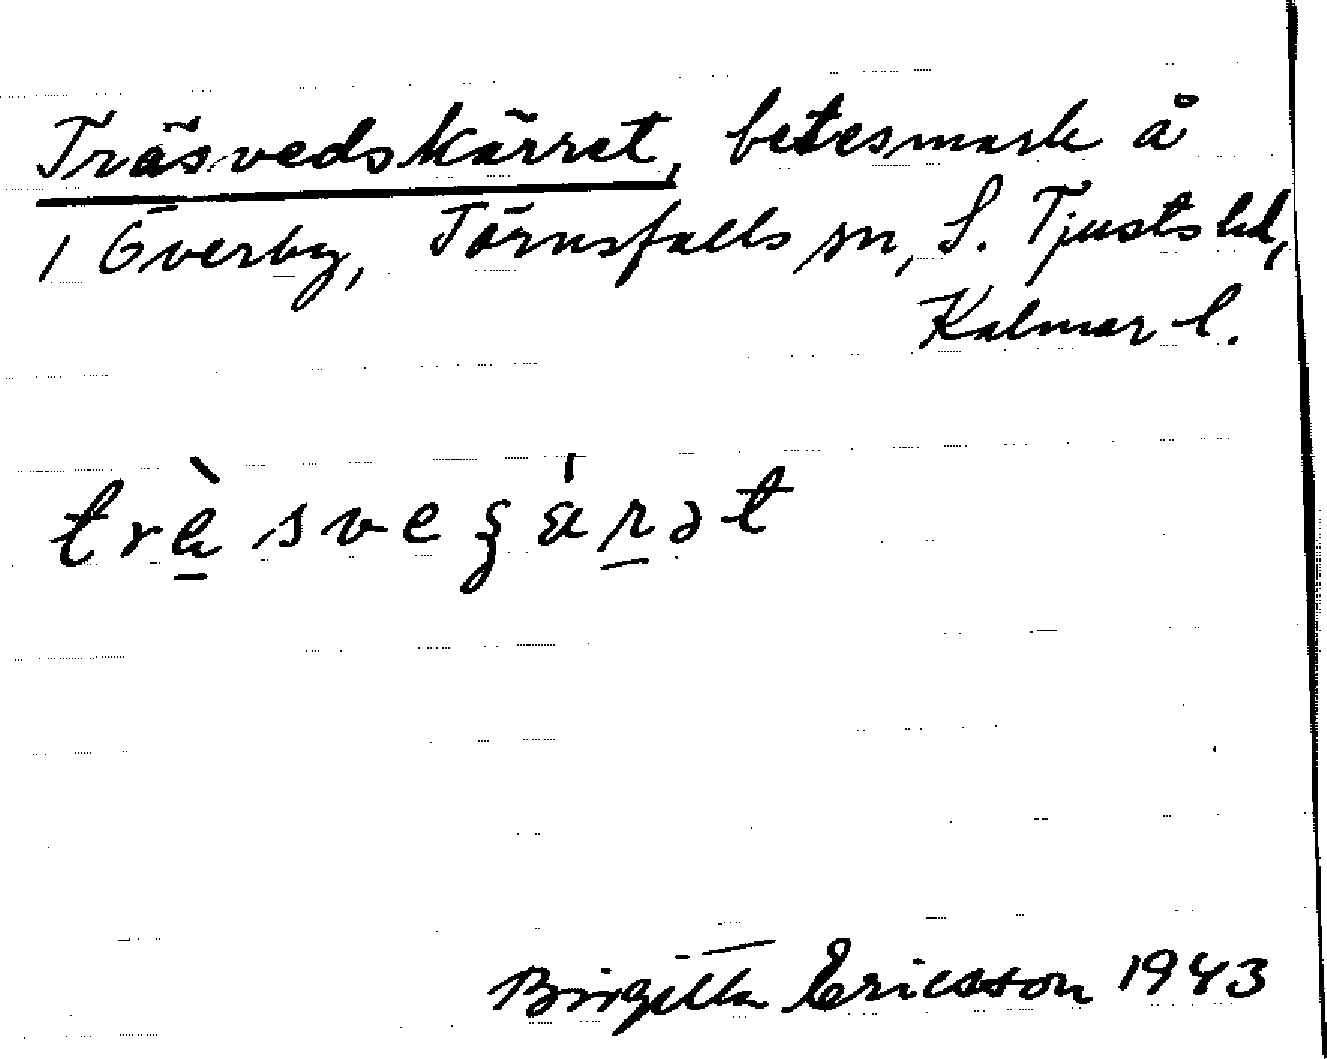 Träsvedskärret, betesmark å
1 Överby, Törnsfalls sn, S. Tjusts hd,
Kalmar l.
Birgitta Ericsson 1943